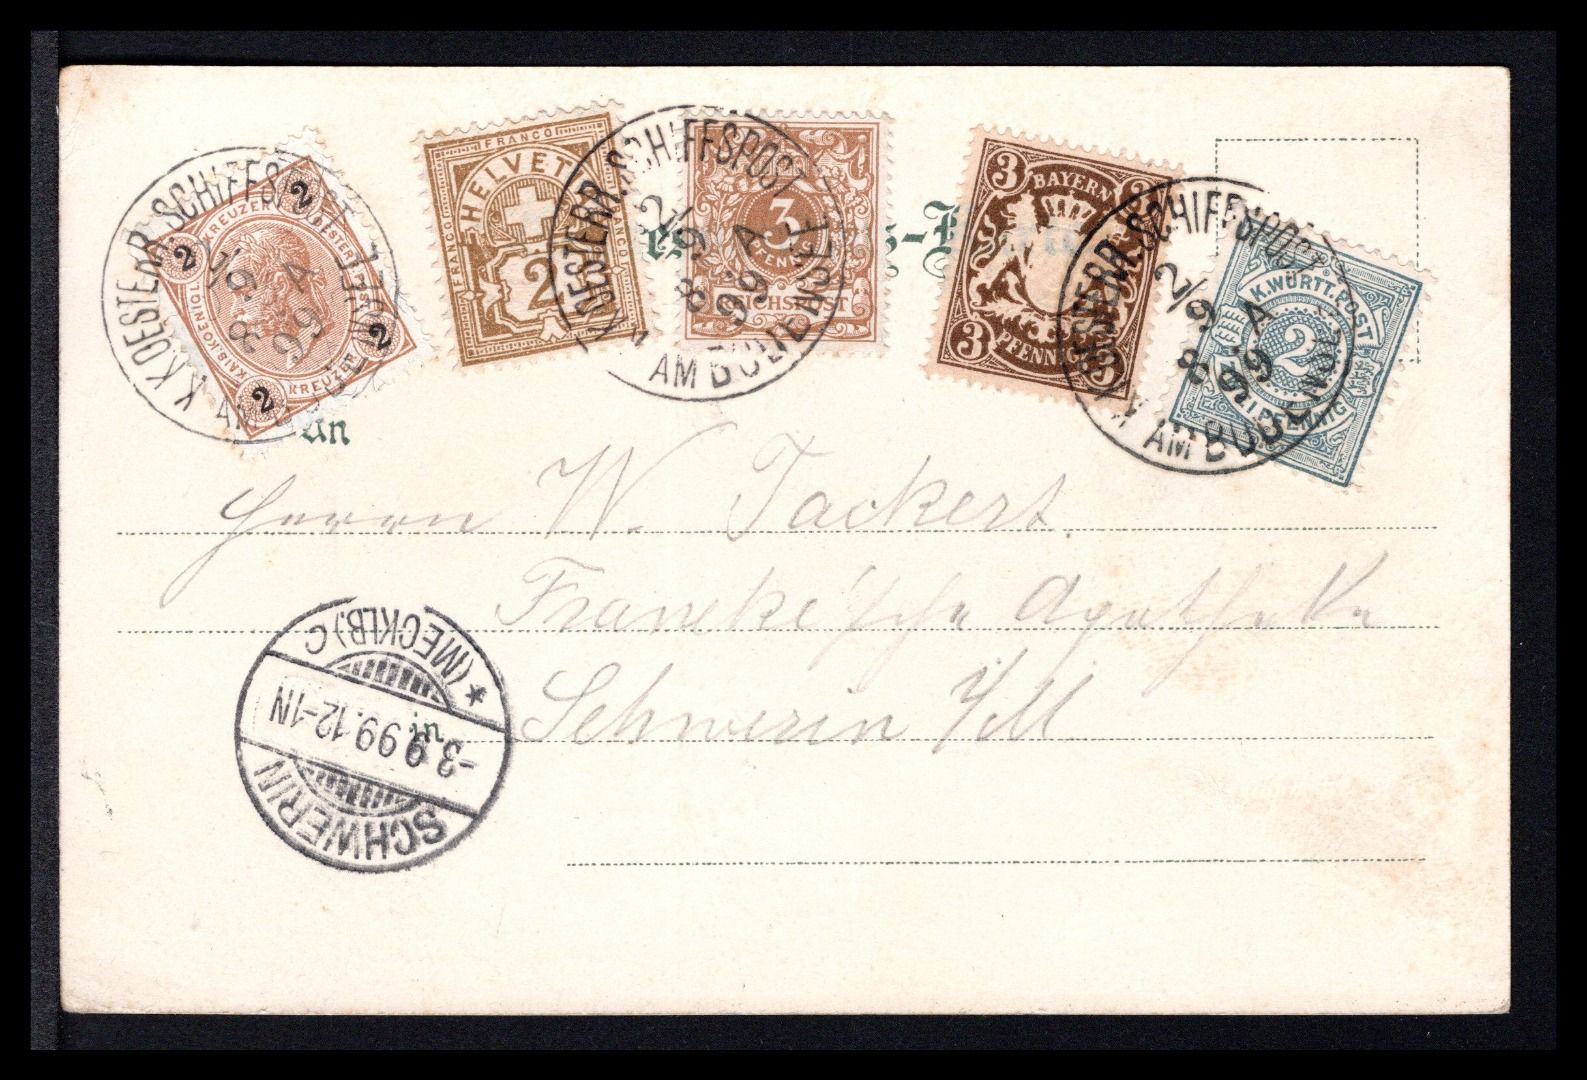 2 2 2 2
KAIS. KOENIGL. OESTERR. POST
KREUZER KREUZER
K.K.OESTERR. SCHIFFSPOST
2/9 8 A 99
FRANCO HELVETIA FRANCO FRANCO
2
K.K.OESTERR. SCHIFFSPOST
2/9 8 A 99
AM BODENSEE
3
PFENNIG
REICHSPOST
3 BAYERN 3
3 PFENNIG 3
K.K.OESTERR. SCHIFFSPOST
2/9 8 A 99
AM BODENSEE
K.WÜRTT.POST
2
PFENNIG
An
Herrn W. Tackert
Francke'sche Apotheke
in Schwerin i/M
SCHWERIN
-3.9.99.12-1N
*(MECKLB.) C